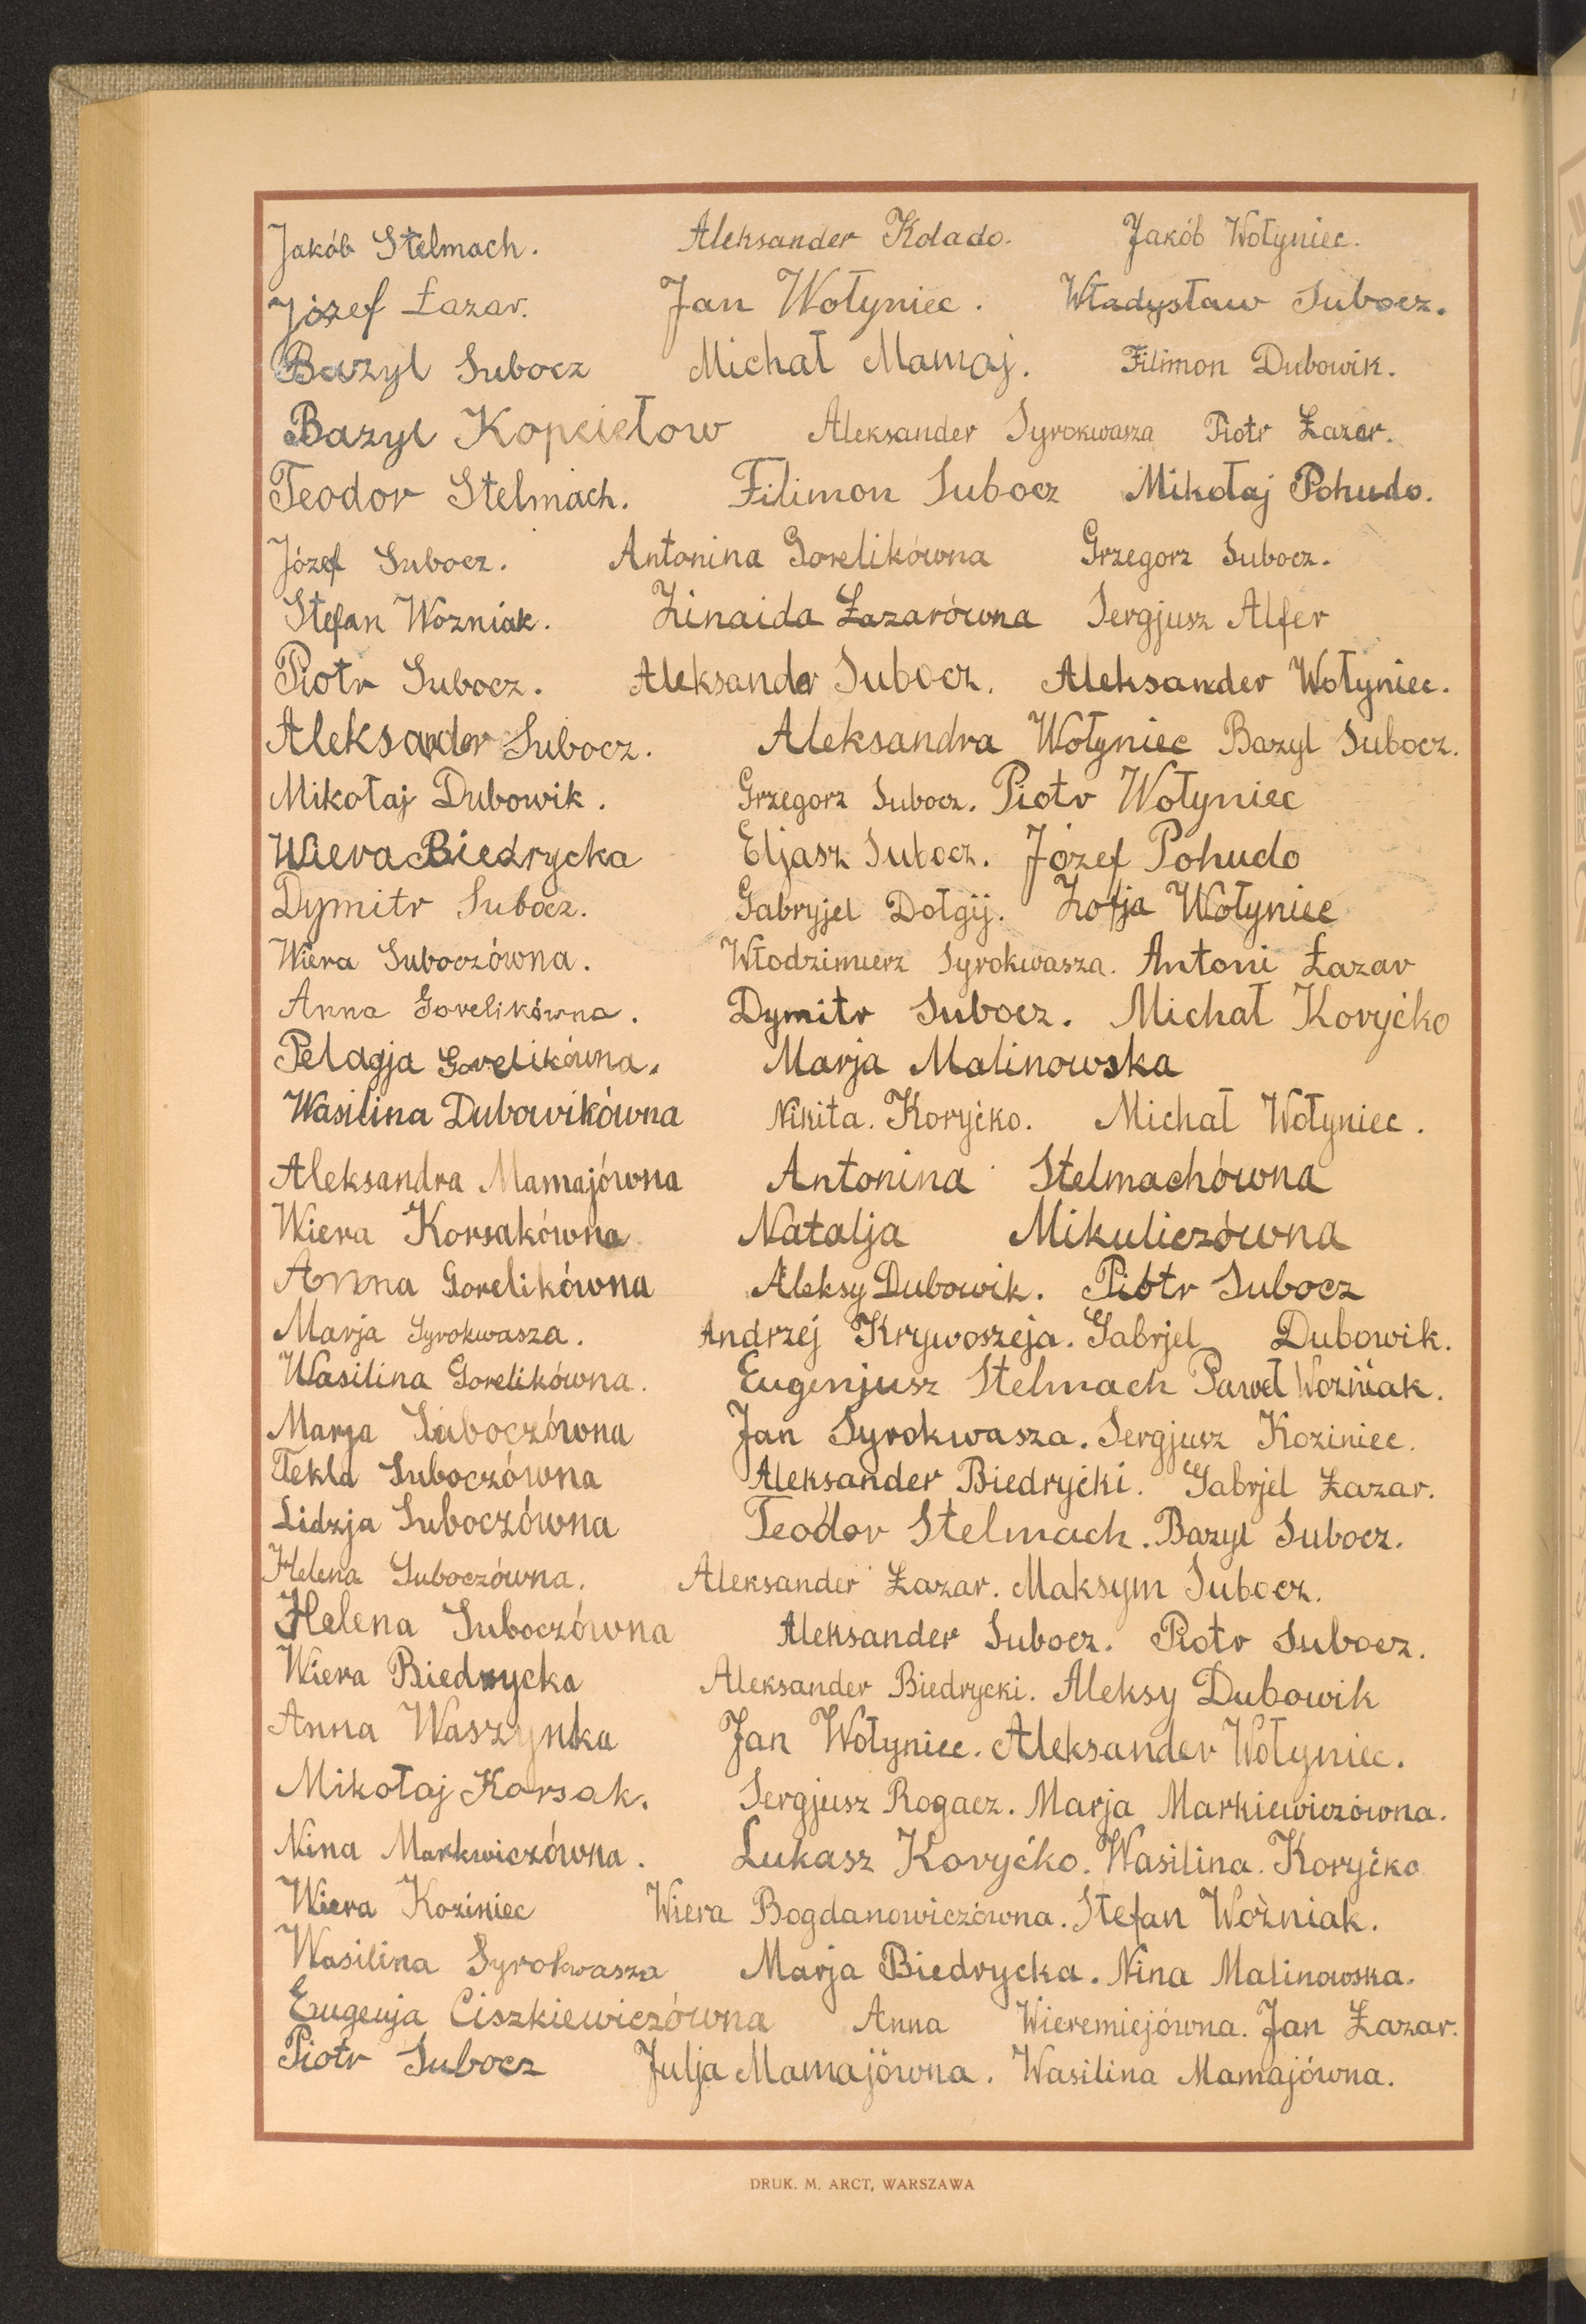 Jakób Stelmach. Aleksander Kolado. Jakób Wołyniec.
Józef Łazar. Jan Wołyniec. Władysław Subocz.
Bazyl Subocz Michał Mamaj. Filimon Dubowik.
Bazyl Kopciełow Aleksander Syrokwasza Piotr Łazar.
Teodor Stelmach. Filimon Subocz Mikołaj Pohudo.
Józef Subocz. Antonina Gorelikówna Grzegorz Subocz.
Stefan Wozniak. Zinaida Łazarówna Sergjusz Alfer
Piotr Subocz. Aleksander Subocz. Aleksander Wołyniec.
Aleksander Subocz. Aleksandra Wołyniec Bazyl Subocz.
Mikołaj Dubowik. Grzegorz Subocz. Piotr Wołyniec
Wiera Biedrycka Eljasz Subocz. Józef Pohudo
Dymitr Subocz. Gabryjel Dołgij. Zofja Wołyniec
Wiera Suboczówna. Włodzimierz Syrokwasza. Antoni Łazar
Anna Gorelikówna. Dymitr Subocz. Michał Koryćko
Pelagja Gorelikówna. Marja Malinowska
Wasilina Dubowikówna Nikita. Koryćko. Michał Wołyniec.
Aleksandra Mamajówna Antonina Stelmachówna
Wiera Korsakówna Natalja Mikuliczówna
Anna Gorelikówna Aleksy Dubowik. Piotr Subocz
Marja Syrokwasza. Andrzej Krywoszeja. Gabrjel Dubowik.
Wasilina Gorelikówna. Eugenjusz Stelmach Paweł Woźniak.
Marja Suboczówna Jan Syrokwasza. Sergjusz Koziniec.
Tekla Suboczówna Aleksander Biedryćki. Gabrjel Łazar.
Lidzja Suboczówna Teodor Stelmach. Bazyl Subocz.
Helena Suboczówna. Aleksander Łazar. Maksym Subocz.
Helena Suboczówna Aleksander Subocz. Piotr Subocz.
Wiera Biedrycka Aleksander Biedrycki. Aleksy Dubowik
Anna Waszynka Jan Wołyniec. Aleksander Wołyniec.
Mikołaj Korsak. Sergjusz Rogacz. Marja Markiewiczówna.
Nina Markwiczówna. Lukasz Koryćko. Wasilina. Koryćko
Wiera Koziniec Wiera Bogdanowiczówna. Stefan Woźniak.
Wasilina Syrokwasza Marja Biedrycka. Nina Malinowska.
Eugenja Ciszkiewiczówna Anna Wieremiejówna. Jan Łazar.
Piotr Subocz Julja Mamajówna. Wasilina Mamajówna.
DRUK. M. ARCT, WARSZAWA